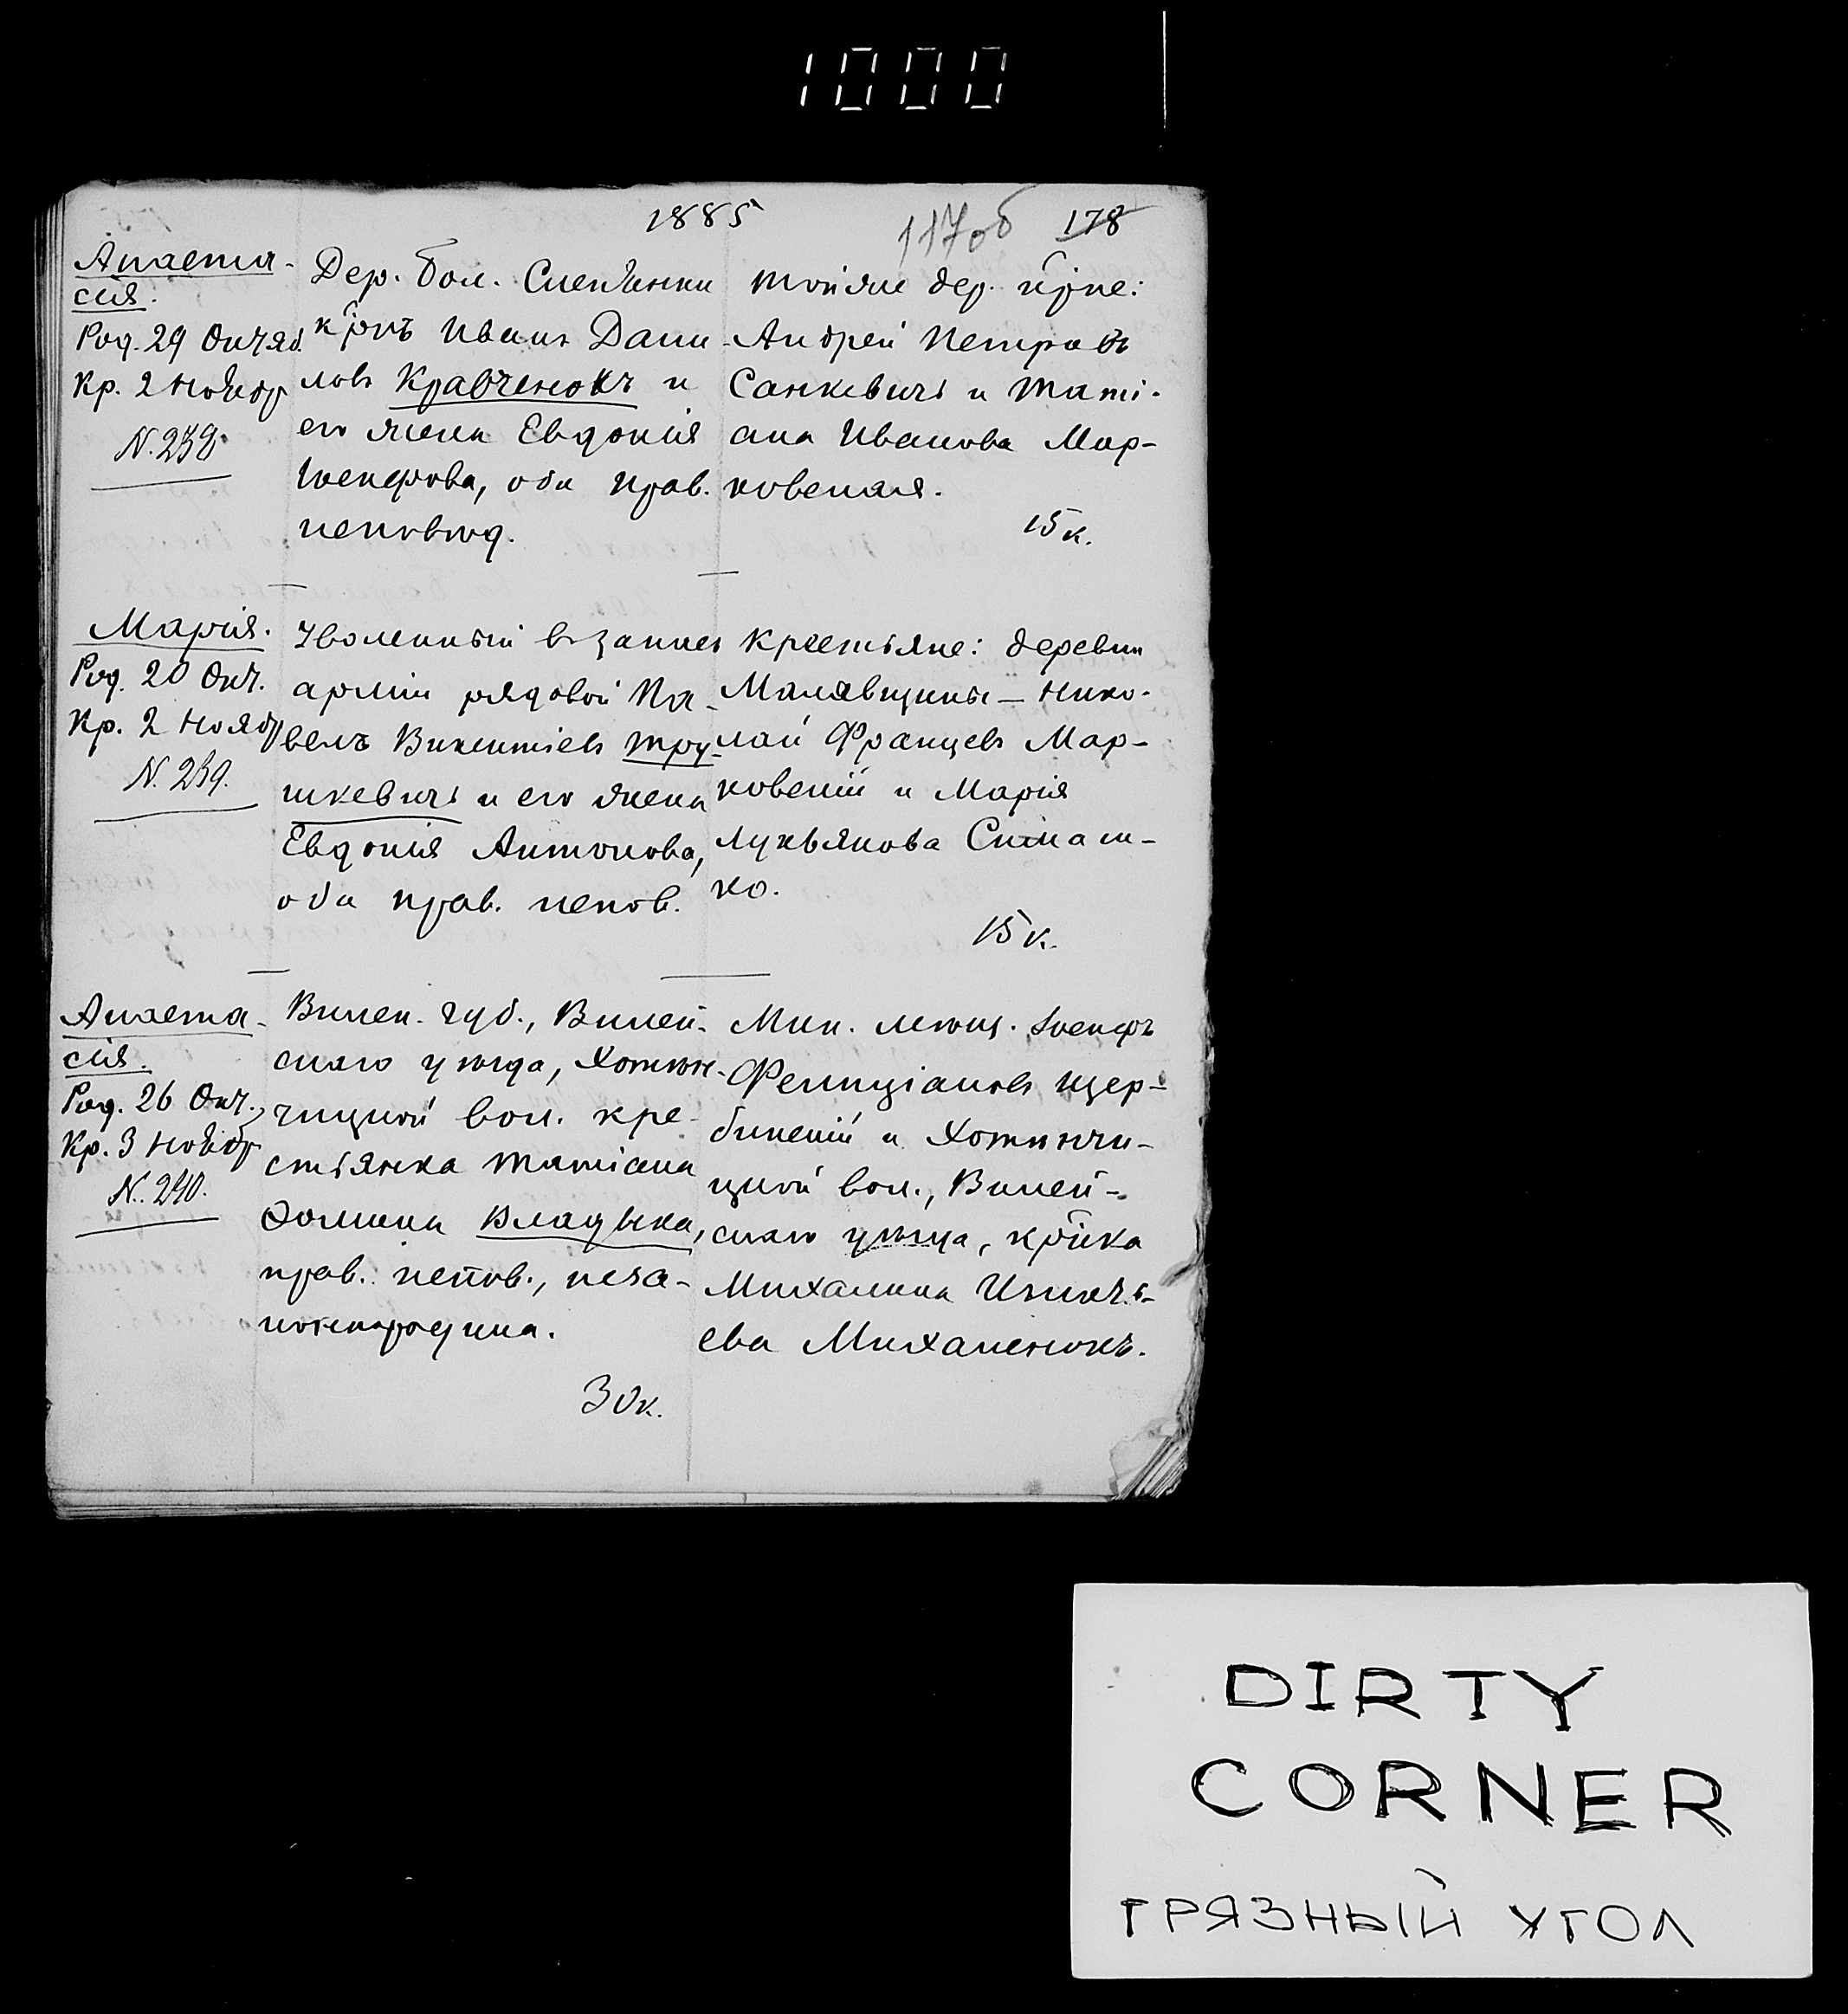 1000
1885
117об 178
Анаста-
сія.
Род. 29 Октяб.
Кр. 2 Ноябр
N. 238.
Дер. бол. Слепянки
кр̃нъ Иванъ Дани-
ловъ Кравченокъ и
его жена Евдокія
Іосифова, оба прав.
исповѣд.
Тойже дер. кр̃не:
Андрей Петровъ
Санкевичъ и Тати-
ана Иванова Мар-
ковская.
15 к.
Марія.
Род. 20 Окт.
Кр. 2 Ноябр
N. 239.
Уволенный въ запасъ
арміи рядовой Па-
велъ Викентіевъ Тру-
шкевичъ и его жена
Евдокія Антонова,
оба прав. испов.
Крестьяне: деревни
Малявщины – Нико-
лай Францевъ Мар-
ковскій и Марія
Лукьянова Симаш-
ко.
15 к.
Анаста-
сія.
Род. 26 Окт.
Кр. 3 Ноябр
N. 240.
Вилен. губ., Вилей-
скаго уѣзда, Хотен-
чицкой вол. кре-
стьянка Татіана
Фомина Владыка,
прав. испов., неза-
коннорожденна.
30 к.
Мин. мѣщ. Іосифъ
Фелиціановъ Щер-
бинскій и Хотенчи-
цкой вол., Вилей-
скаго уѣзда, кр̃нка
Михалина Игнатъ-
ева Михаленокъ.
DIRTY
CORNER
ГРЯЗНЫЙ УГОЛ